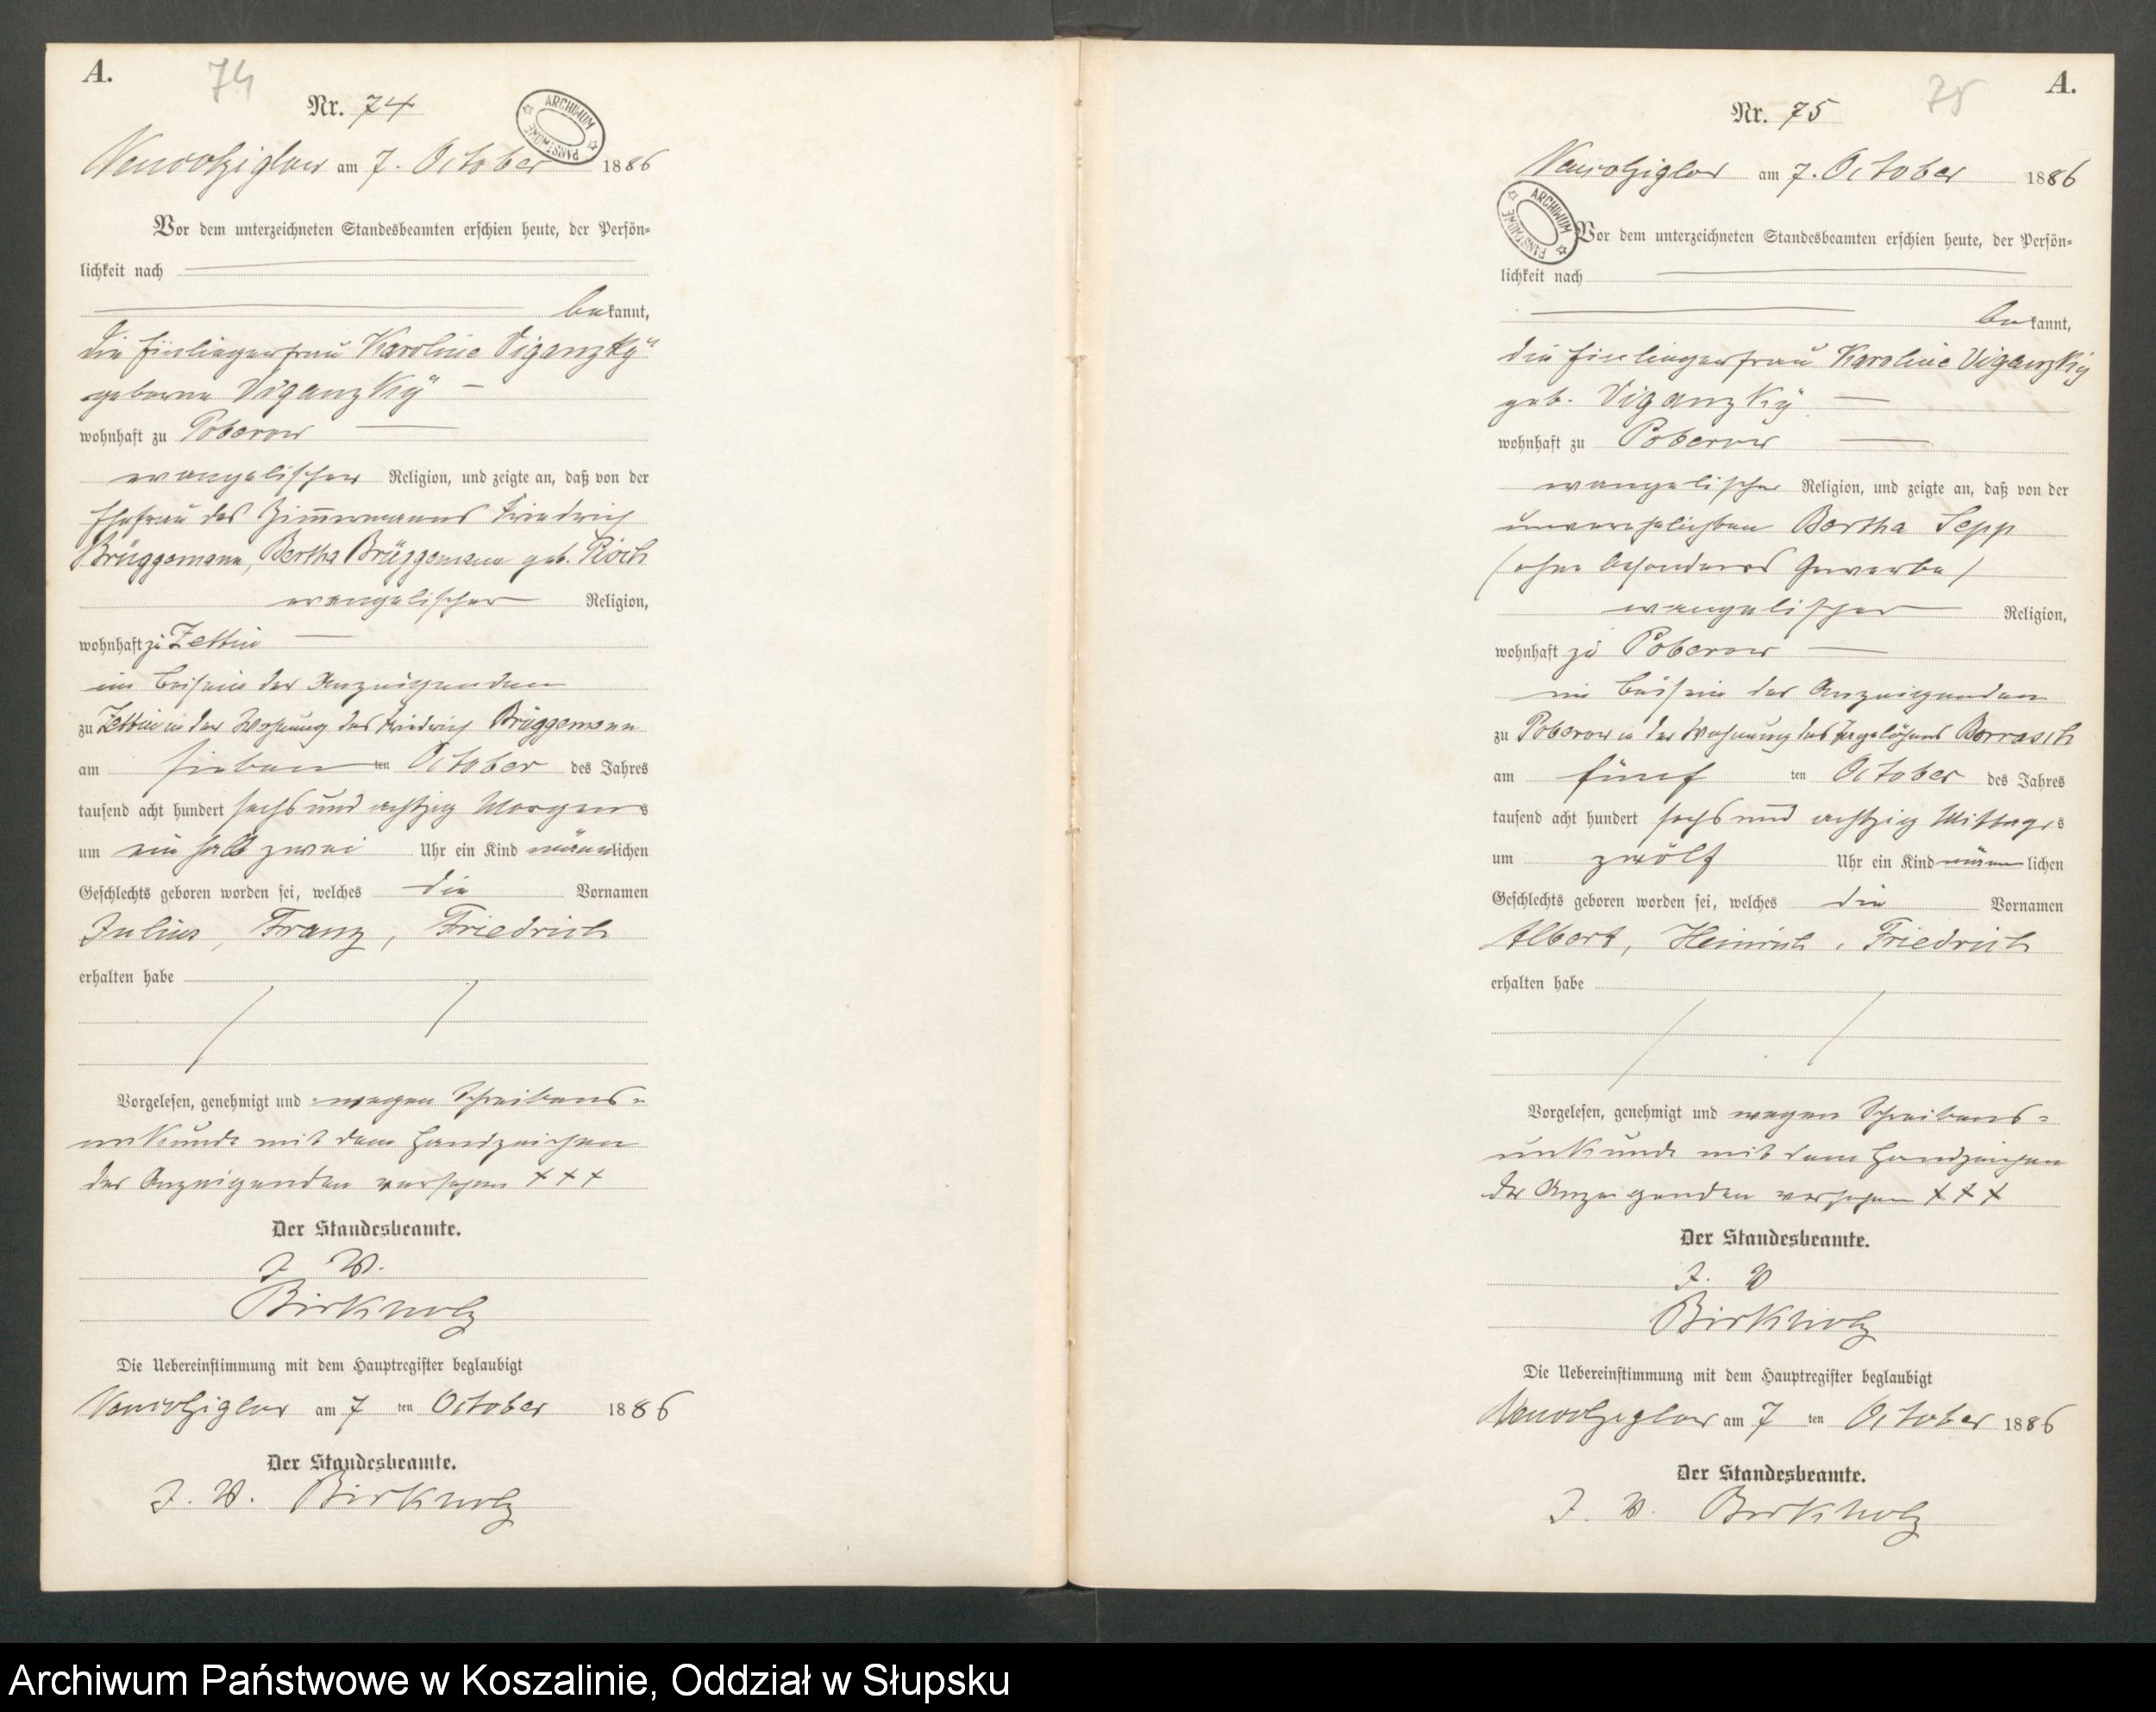 A.
74
Nr. 74
ARCHIWUM PAŃSTWOWE
Neuwolziglow am 7. October 1886
Vor dem unterzeichneten Standesbeamten erschien heute, der Persön-
lichkeit nach
bekannt,
die Einliegerfrau Karoline Viganzky
geborne Viganzky
wohnhaft zu Poberow
evangelischer Religion, und zeigte an, daß von der
Ehefrau des Zimmermanns Friedrich
Brüggemann, Bertha Brüggemann geb. Pioch
evangelischer Religion,
wohnhaft zu Zettin
im Beisein der Anzeigenden
zu Zettin in der Wohnung des Friedrich Brüggemann
am sieben ten October des Jahres
tausend acht hundert sechs und achtzig Morgens
um ein halb zwei Uhr ein Kind männlichen
Geschlechts geboren worden sei, welches die Vornamen
Julius, Franz, Friedrich
erhalten habe
Vorgelesen, genehmigt und wegen Schreibens-
unkunde mit dem Handzeichen
der Anzeigenden versehen + + +
Der Standesbeamte.
J. V.
Birkholz
Die Uebereinstimmung mit dem Hauptregister beglaubigt
Neuwolziglow am 7 ten October 1886
Der Standesbeamte.
J. V. Birkholz
A.
75
Nr. 75
Neuwolziglow am 7. October 1886
ARCHIWUM PAŃSTWOWE
Vor dem unterzeichneten Standesbeamten erschien heute, der Persön-
lichkeit nach
bekannt,
die Einliegerfrau Karoline Viganzky
geb. Viganzky
wohnhaft zu Poberow
evangelischer Religion, und zeigte an, daß von der
unverehelichten Bertha Sepp
(ohne besonderes Gewerbe)
evangelischer Religion,
wohnhaft zu Poberow
im Beisein der Anzeigenden
zu Poberow in der Wohnung des Tagelöhners Borrasch
am fünf ten October des Jahres
tausend acht hundert sechs und achtzig Mittags
um zwölf Uhr ein Kind männlichen
Geschlechts geboren worden sei, welches die Vornamen
Albert, Heinrich, Friedrich
erhalten habe
Vorgelesen, genehmigt und wegen Schreibens-
unkunde mit dem Handzeichen
der Anzeigenden versehen + + +
Der Standesbeamte.
J. V.
Birkholz
Die Uebereinstimmung mit dem Hauptregister beglaubigt
Neuwolziglow am 7 ten October 1886
Der Standesbeamte.
J. V. Birkholz
Archiwum Państwowe w Koszalinie, Oddział w Słupsku